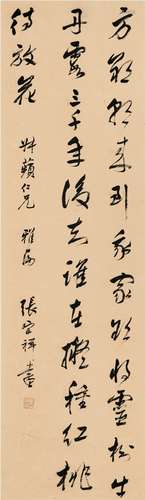 方朔朝來到我家欲將靈樹出
丹霞三千年後知誰在擬種紅桃
待放花
蘋仁兄 雅
張宗祥書